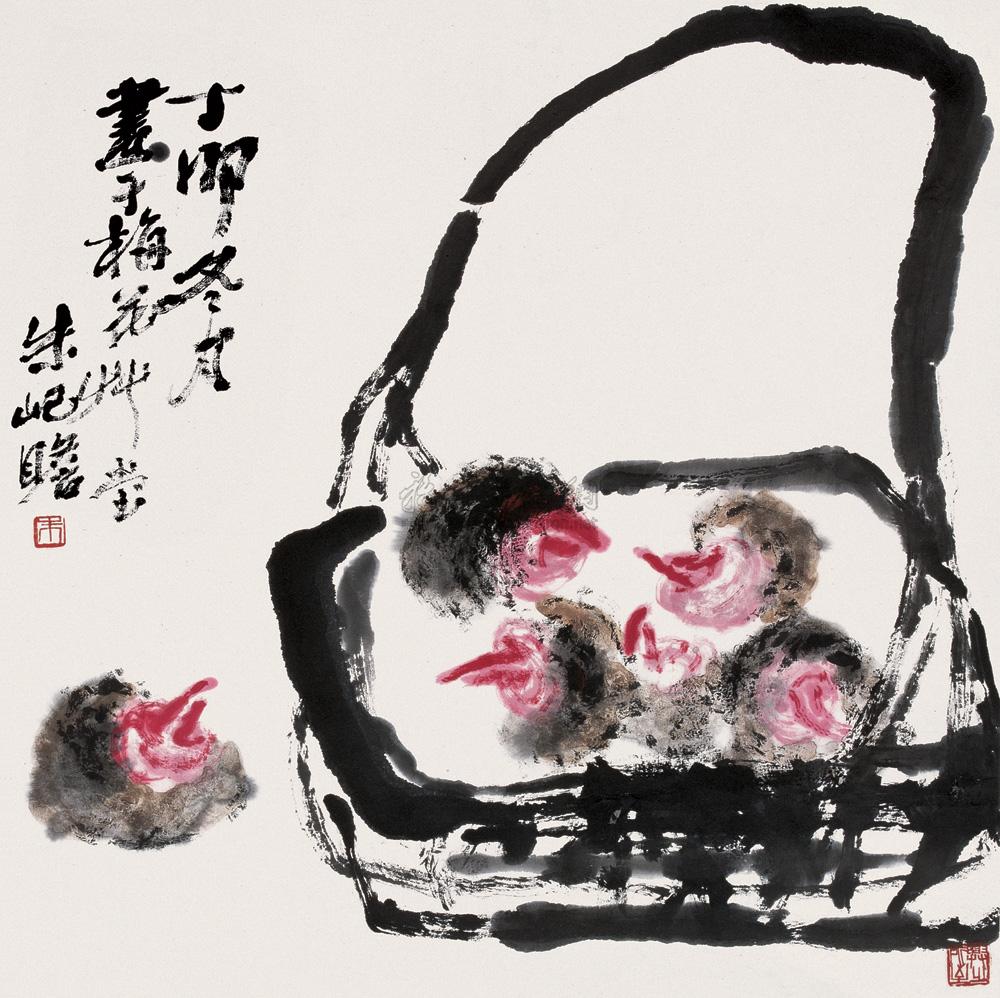 丁卯冬月
畫于梅花艸堂
朱屺瞻
朱